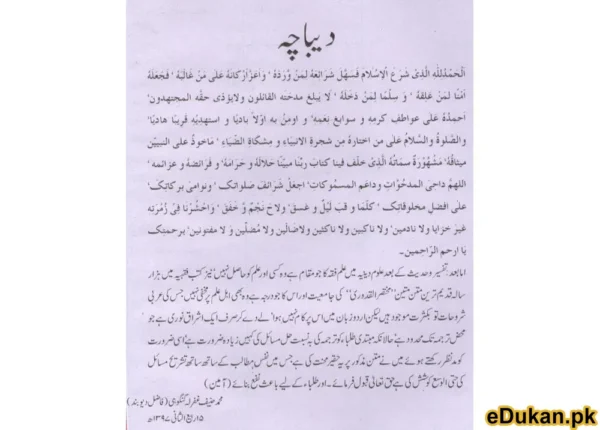 دیباچہ
اَلْحَمْدُلِلّٰهِ الَّذِیْ شَرَعَ الْاِسْلَامَ فَسَهَّلَ شَرَائِعَهُ لِمَنْ وَرَدَهُ ' وَاَعَزَّ اَرْکَانَهُ عَلٰی مَنْ غَالَبَهُ ' فَجَعَلَهُ
اَمْنًا لِمَنْ عَلِقَهُ ' وَ سِلْمًا لِمَنْ دَخَلَهُ ' لَا یبلغ مدحته القائلون ولایؤدی حقه المجتهدون'
احمدهٗ عَلٰی عواطفِ کرمه و سوابغ نعمه' و اومنُ به اولًا بادیًا و استهدیهِ قریبا هادیا'
والصَّلوةُ والسَّلامُ عَلٰی من اختارهٗ مِن شجرةِ الانبیاء و مشکاةِ الضّیاء ' ماخوذٌ علی النبیین
میثاقُه' مَشْهُوْرَةٌ سماتُهُ الَّذِیْ خلَّف فینا کتابَ ربِّنا مبینًا حلالَهٗ و حرامَهٗ' و فرائضَهٗ و عزائمه '
اللهم داحِیَ المدحُوّات وداعم المسموکات' اجعل شرائف صلواتک' ونوامی برکاتِک'
علی افضلِ مخلوقاتِک' کلَّما وَقَب لَیْلٌ و غسق' ولاحَ نَجْمٌ وَّ خَفَق ' وَاحْشُرْنا فِیْ زُمْرَتِه
غیرَ خزایا ولا نادمین' ولا ناکبین ولا ناکثین ولاضالّین ولا مُضلّین وَ لا مفتونین' برحمتک
یا ارحم الراحمین۔
امابعد! تفسیر وحدیث کے بعد علوم دینیہ میں علم فقہ کا جو مقام ہے وہ کسی اور علم کو حاصل نہیں' نیز کتب فقہیہ میں ہزار
سالہ قدیم ترین متن متین ''مختصر القدوری'' کی جامعیت اور اس کا جو درجہ ہے وہ بھی اہل علم پر مخفی نہیں جس کی عربی
شروحات تو بکثرت موجود ہیں لیکن اردو زبان میں اس پر کام نہیں ہوا' لے دے کر صرف ایک اشراق نوری ہے جو
محض ترجمہ تک محدود ہے حالانکہ مبتدی طلباء کو ترجمہ کی بہ نسبت حل مسائل کی کہیں زیادہ ضرورت ہے' اسی ضرورت
کو مدنظر رکھتے ہوئے میں نے متن مذکور پر یہ حقیر محنت کی ہے جس میں نفس مطالب کے ساتھ ساتھ تشریح مسائل
کی حتی الوسع کوشش کی ہے حق تعالٰی قبول فرمائے۔ اور طلباء کے لیے باعث نفع بنائے (آمین)
محمد حنیف غفرلہ گنگوہی (فاضل دیوبند)
۱۵ ربیع الثانی ۱۳۹۷ھ
eDukan.pk